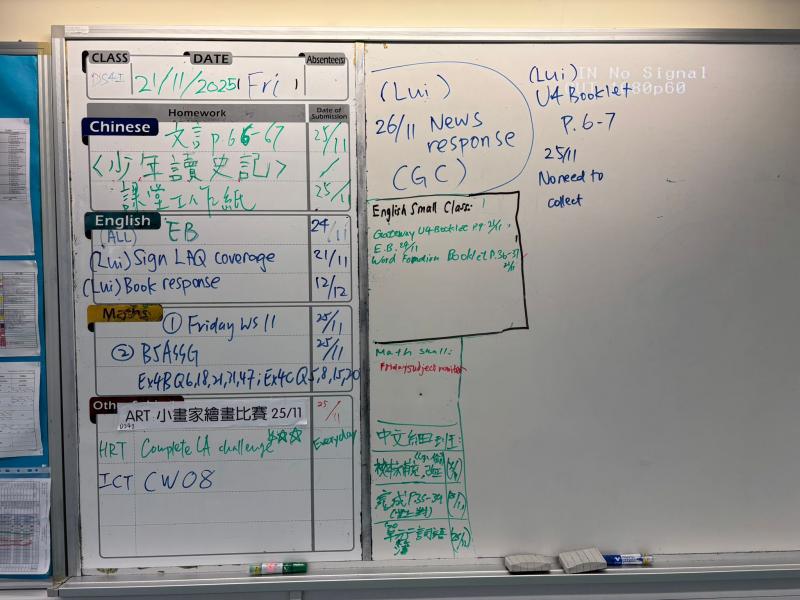 CLASS DATE Absentees
DS4I 21/11/2025 Fri 1
Homework Date of Submission
Chinese 文言 p.66-67 25/11
<少年讀史記> /
課堂工作紙 25/11
English (ALL) EB 24/11
(Lui) Sign LAQ coverage 21/11
(Lui) Book response 12/12
Maths ① Friday WS 11 25/11
② B5A4G 25/11
Ex4B Q6,18,21,21,47; Ex4C Q5,8,15,20
ART 小畫家繪畫比賽 25/11 25/11
HRT Complete LA challenge ☆☆☆ Everyday
ICT CW08
(Lui)
26/11 News
response
(GC)
English Small Class:
Gateway U4 Booklet P.9
E.B. 24/11
Word Formation Booklet P.36-37
Math small:
Friday subject monitor
中文細班:
完成P.35-39
(Lui)
U4 Booklet
P.6-7
25/11
No need to
collect
IN No Signal
80p60